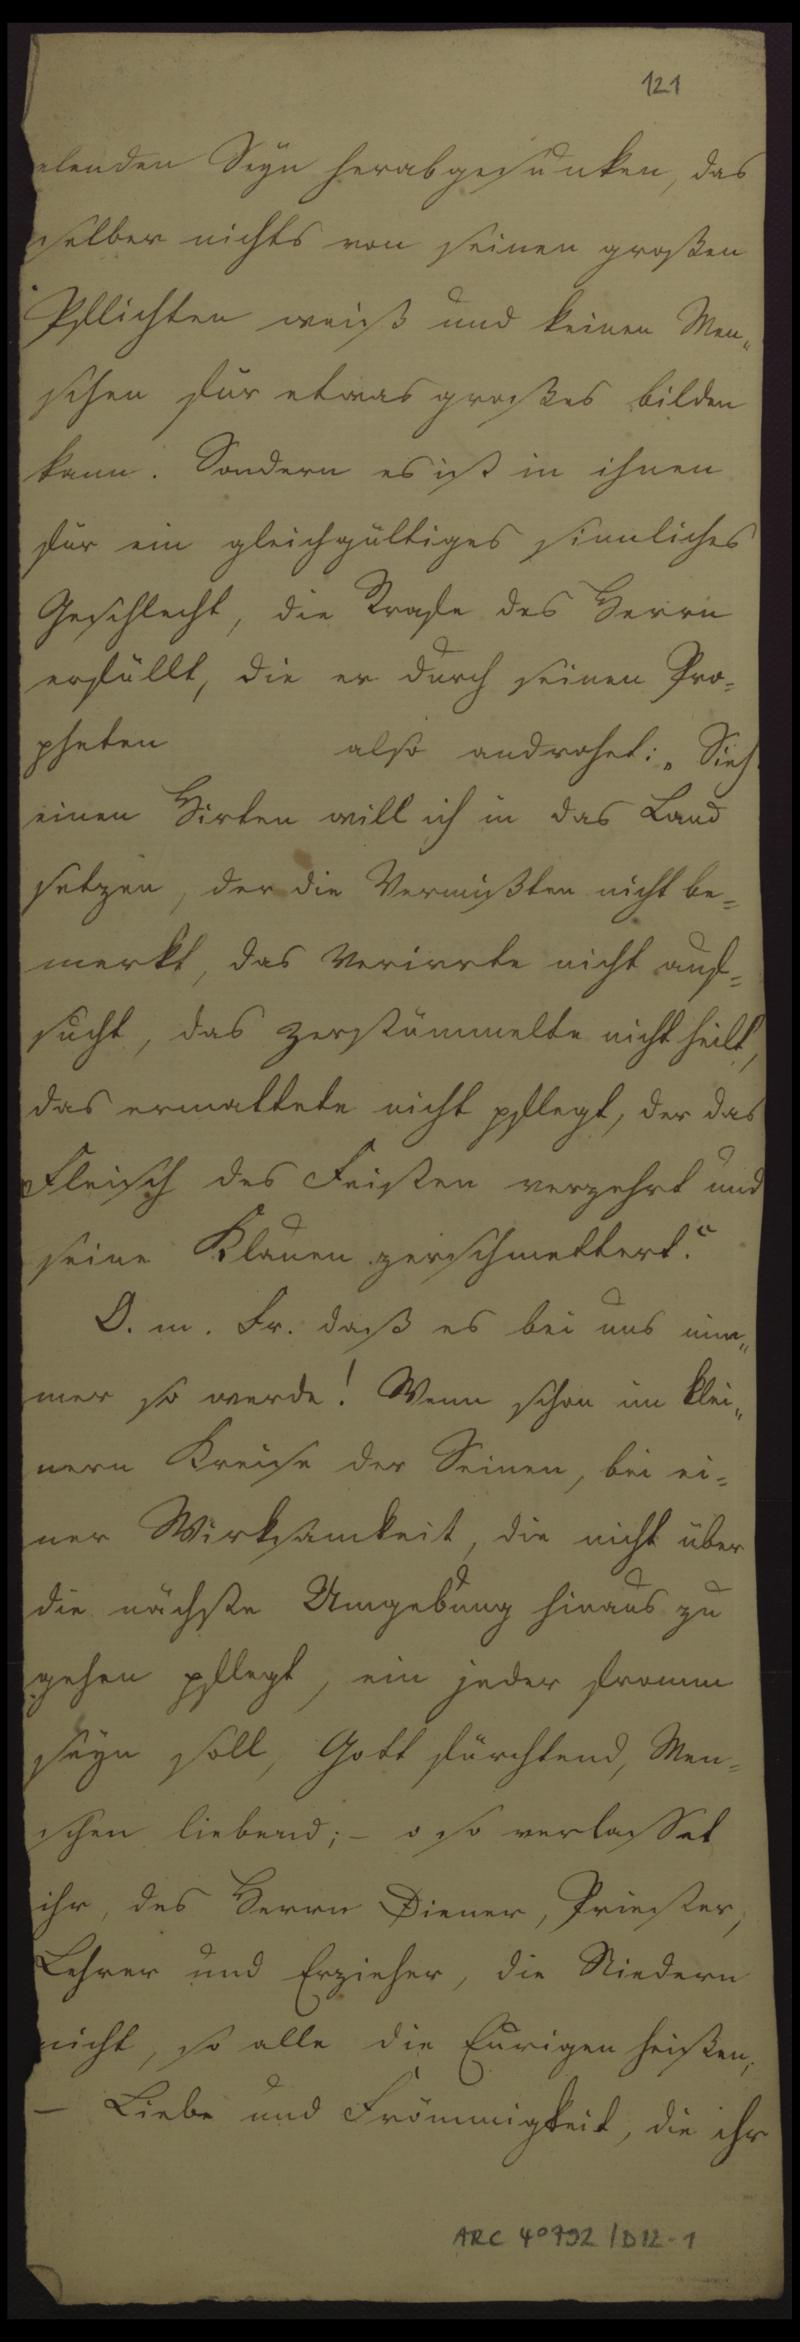 121
elenden Seyn herabgesunken, das
selber nichts von seinen großen
Pflichten weiß und keinen Men„
schen für etwas großes bilden
kann. Sondern es ist in ihnen
für ein gleichgültiges sinnliches
Geschlecht, die Strafe des Herrn
erfüllt, die er durch seinen Pro=
pheten also androhet: „Sieh
einen Hirten will ich in das Land
setzen, der die Vermißten nicht be=
merkt, das Verirrte nicht auf=
sucht, das zerstümmelte nicht heilt,
das ermattete nicht pflegt, der das
Fleisch des Feisten verzehrt und
seine Klauen zerschmettert.“
O. m. Fr. daß es bei uns nim„
mer so werde! Wenn schon im klei„
nern Kreise der Seinen, bei ei=
ner Wirksamkeit, die nicht über
die nächste Umgebung hinaus zu
gehen pflegt, ein jeder fromm
seyn soll, Gott fürchtend, Men=
schen liebend; – o so verlasset
ihr, des Herrn Diener, Priester,
Lehrer und Erzieher, die Niedern
nicht, so alle die Eurigen heißen,
– Liebe und Frömmigkeit, die ihr
ARC 4° 792 / D12-1